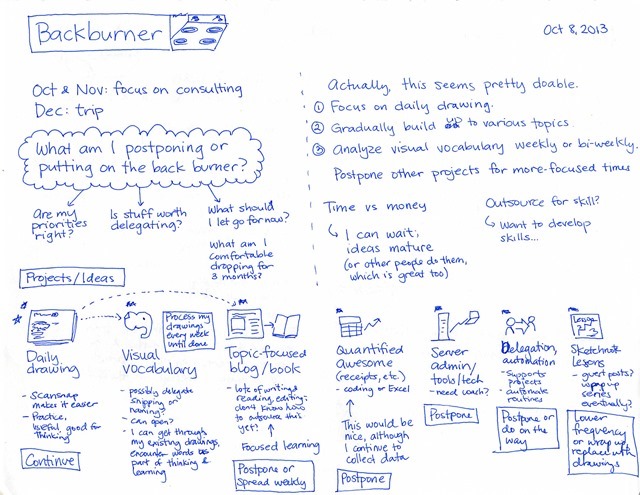 Backburner
Oct 8, 2013
Oct & Nov: focus on consulting
Dec: trip
What am I postponing or
putting on the back burner?
Are my
priorities
right?
Is stuff worth
delegating?
What should
I let go for now?
What am I
comfortable
dropping for
3 months?
Actually, this seems pretty doable.
① Focus on daily drawing.
② Gradually build up to various topics
③ Analyze visual vocabulary weekly or bi-weekly.
Postpone other projects for more-focused times
Time vs money
I can wait;
ideas mature
(or other people do them,
which is great too)
Outsource for skill?
Want to develop
skills...
Projects/Ideas
Daily
drawing
- Scansnap
makes it easier
- Practice,
useful good for
thinking
Continue
Process my
drawings
every week
until done
Visual
vocabulary
- possibly delegate
snipping or
naming?
- can open?
- I can get through
my existing drawings,
encounter words as
part of thinking &
learning
Topic-focused
blog/book
- lots of writing,
reading, editing;
don't know how
to outsource this
yet!
Focused learning
Postpone or
spread weekly
Quantified
Awesome
(receipts, etc.)
- coding or Excel
This would be
nice, although
I continue to
collect data
Postpone
Server
admin/
tools/tech
- need work?
Postpone
Delegation,
automation
- supports
projects
- automate
routines
Postpone or
do on the
way
Lesson
Sketchnote
Lessons
- guest posts?
wrap up
series
eventually?
Lower
frequency
or wrap up,
replace with
drawings